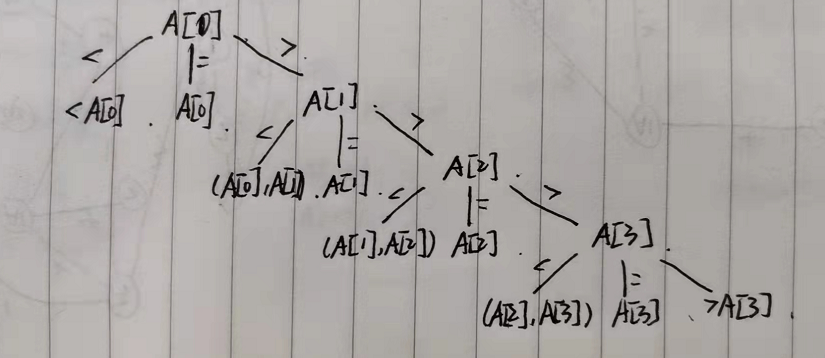 A[0]
< = >
<A[0] . A[0] . A[1] . >
< =
(A[0],A[1]) . A[1] . A[2] .
< = >
(A[1],A[2]) A[2] . A[3] .
< =
(A[2],A[3]) A[3] . >A[3] .